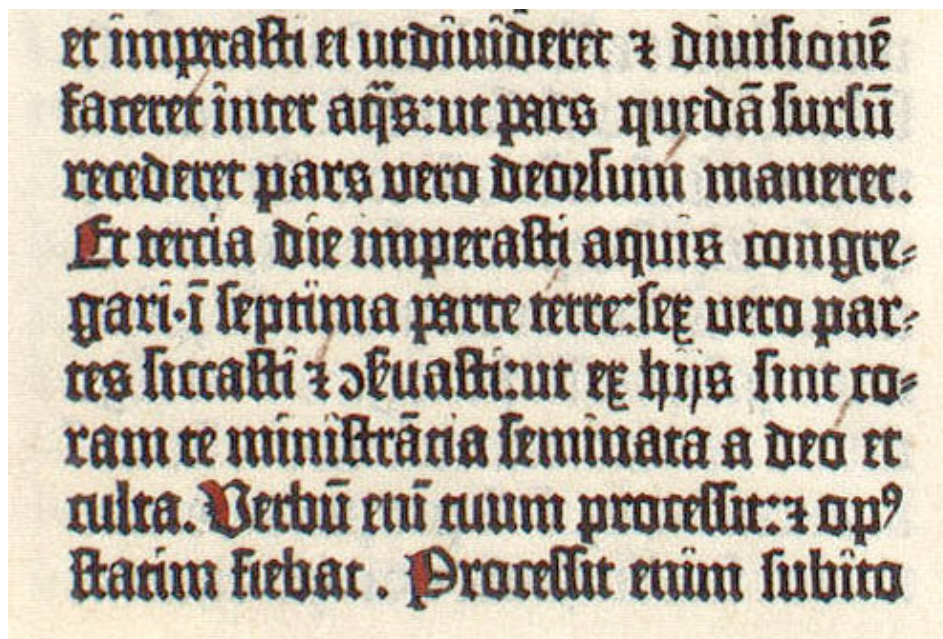 et imperasti ei ut divideret ⁊ divisionē
faceret inter aq̃s: ut pars quedā sursū
recederet pars vero deorsum maneret.
Et tercia die imperasti aquis congre-
gari·ī septima parte terre: sex vero par-
tes siccasti ⁊ ↄẜuasti: ut ex hijs sint co-
ram te ministrātia seminata a deo et
culta. Verbū enī tuum processit: ⁊ opꝰ
statim fiebat. Processit enim subito